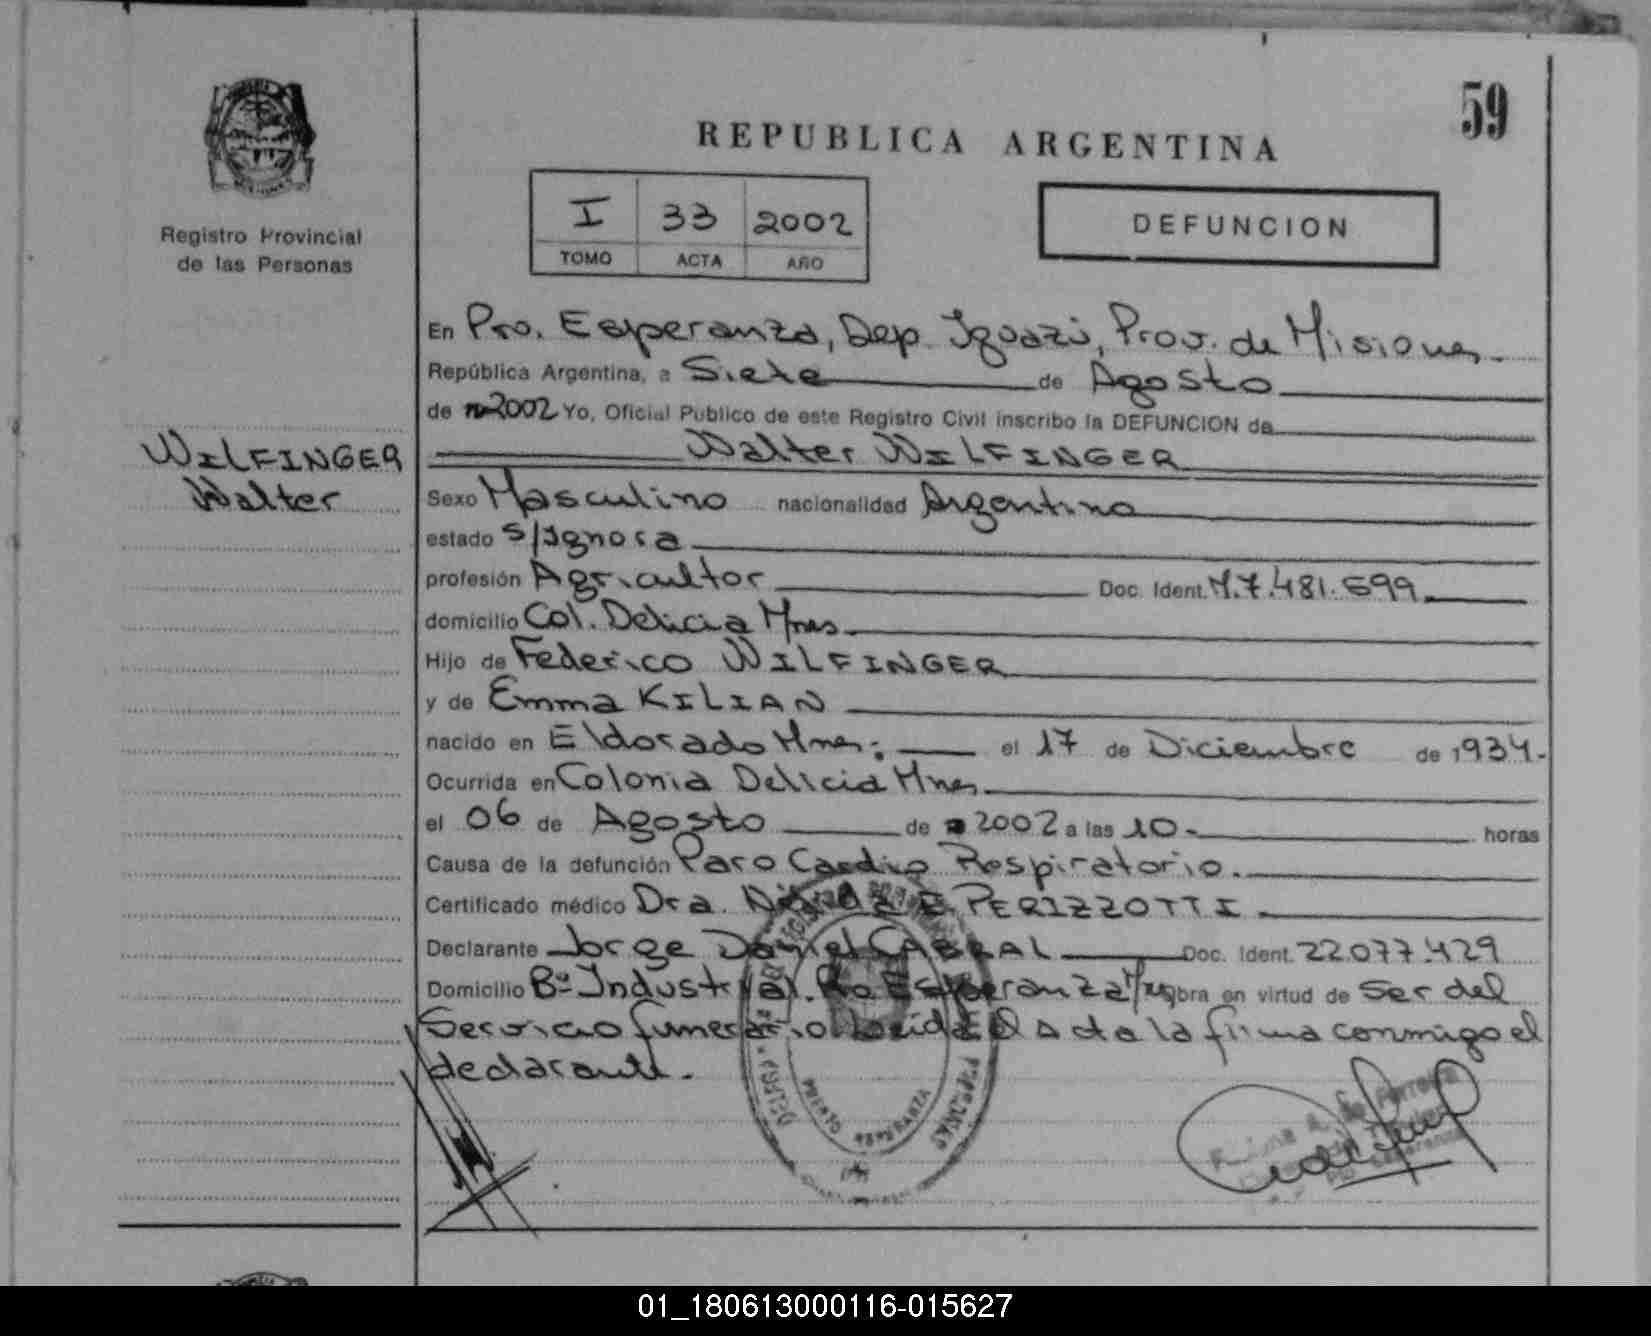 59
REPUBLICA ARGENTINA
Registro Provincial
de las Personas
I 33 2002
TOMO ACTA AÑO
DEFUNCION
En Pto. Esperanza, Dep. Iguazú, Prov. de Misiones.
República Argentina, a Siete de Agosto
de 2002 Yo, Oficial Publico de este Registro Civil inscribo la DEFUNCION de
WILFINGER
Walter
Walter WILFINGER
Sexo Masculino nacionalidad Argentina
estado S/Ignora
profesión Agricultor Doc. Ident. M.7.481.599
domicilio Col. Delicia Mnes.
Hijo de Federico WILFINGER
y de Emma KILIAN
nacido en Eldorado Mnes. el 17 de Diciembre de 1934.
Ocurrida en Colonia Delicia Mnes.
el 06 de Agosto de 2002 a las 10.- horas
Causa de la defunción Paro Cardio Respiratorio.
Certificado médico Dra. E. PERIZZOTTI.
Declarante Jorge Daniel CABRAL Doc. Ident. 22.077.429
Domicilio Bº Industrial. Pto Esperanza Mnes obra en virtud de Ser del
Servicio funerario leida el Acta la firma conmigo el
declarante.
PERSONAS
PUERTO ESPERANZA
01_180613000116-015627